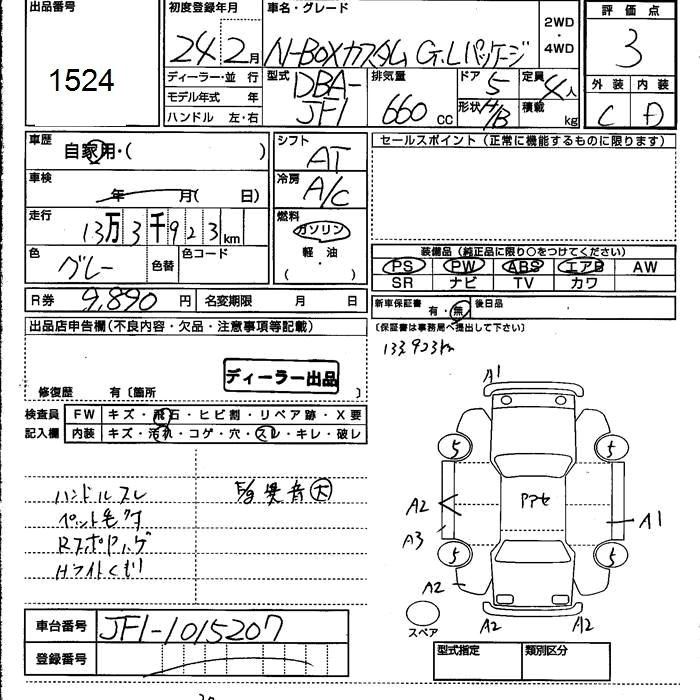 出品番号
1524
初度登録年月
24 2月
車名・グレード
N-BOXカスタム G.Lパッケージ
2WD
・
4WD
評価点
3
外装 内装
C D
ディーラー・並 行
モデル年式 年
ハンドル 左・右
型式
DBA-
JF1
排気量
660 cc
ドア 5
形状 H/B
定員 4人
積載 kg
車歴
自家用・( )
車検
年 月( 日)
走行
13万3千923km
色
グレー
色替
色コード
シフト
AT
冷房
A/C
燃料
ガソリン
軽・油
( ・ )
セールスポイント(正常に機能するものに限ります)
装備品(純正品に限り○をつけてください)
PS PW ABS エアB AW
SR ナビ TV カワ
R券 9,890 円
名変期限 月 日
新車保証書 有・無
後日品
(保証書は事務局へ提出して下さい)
133923km
出品店申告欄(不良内容・欠品・注意事項等記載)
ディーラー出品
修復歴 有〔箇所 〕
検査員
記入欄
FW キズ・飛石・ヒビ割・リペア跡・X要
内装 キズ・汚れ・コゲ・穴・スレ・キレ・破レ
ハンドルスレ
ペット毛付
Hライトくもり
E/g異音大
A1
5 5
A2
A3
A1
5 5
A2
A2 A2
スペア
車台番号 JF1-1015207
登録番号
型式指定 類別区分